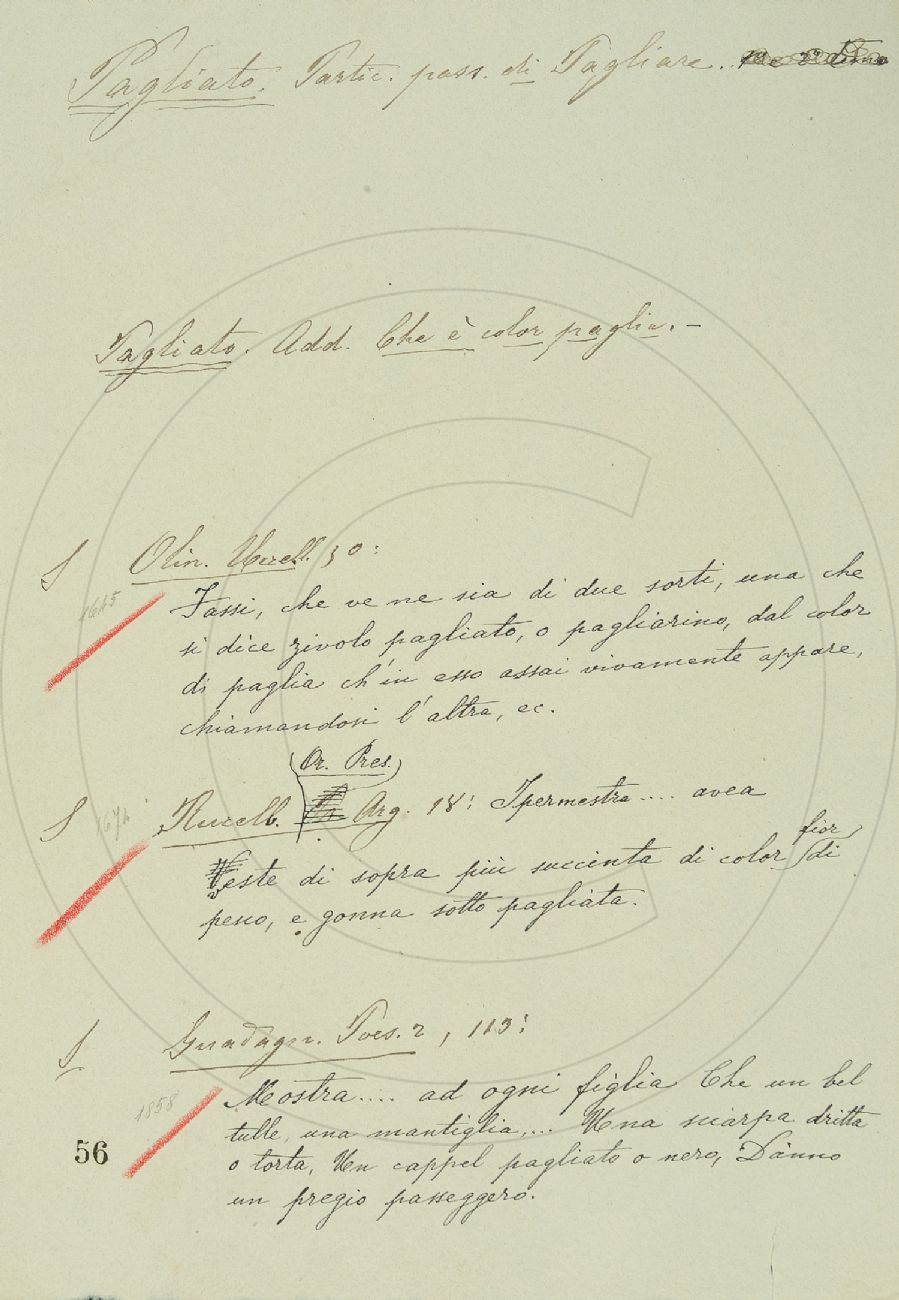 Pagliato. Partic. pass. di Pagliare.
Pagliato. Add. Che è color paglia. –
S Olin. Uccell. 30:
1645
Fassi, che ve ne sia di due sorti, una che
si dice zivolo pagliato, o pagliarino, dal color
di paglia ch'in esso assai vivamente appare,
chiamandosi l'altra, ec.
(Or. Pres.)
S 1674 Rucell. Arg. 18: Ipermestra.... avea
fior
Veste di sopra più succinta di color di
pesco, e gonna sotto pagliata.
S Guadagn. Poes. 2, 113:
1858
Mostra.... ad ogni figlia Che un bel
tulle, una mantiglia.... Una sciarpa dritta
o torta, Un cappel pagliato o nero, Dànno
un pregio passeggero.
56